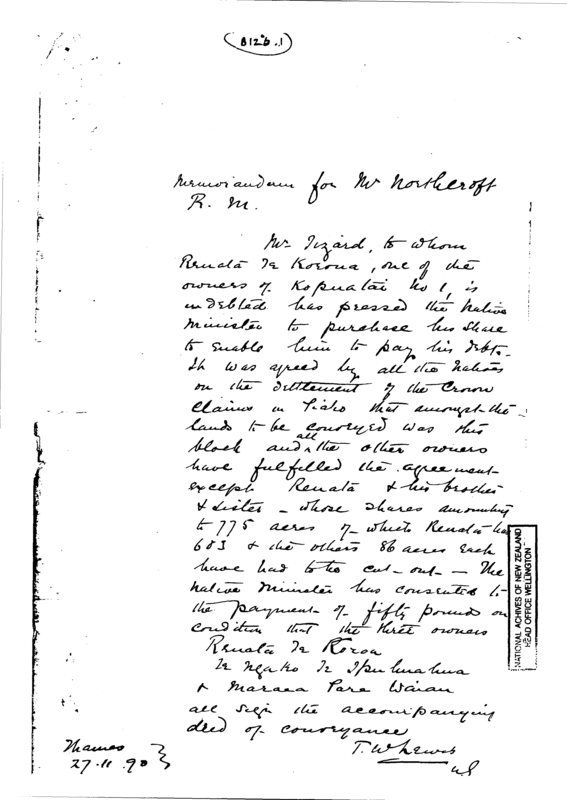 B126.1
Memorandum for Mr Northcroft
R. M.
Mr Izard, to whom
Renata Te Korona, one of the
owners of Kopuatai No 1, is
indebted has pressed the Native
Minister to purchase his share
to enable him to pay his debt.
It was agreed by all the Natives
on the settlement of the Crown
Claims in Piako that amongst the
lands to be conveyed was this
block and all the other owners
have fulfilled the agreement
except Renata & his brother
& sister - whose shares amounting
to 775 acres of which Renata has
603 & the others 86 acres each
have had to be cut-out - The
Native Minister has consented to
the payment of fifty pounds on
condition that the three owners
Renata Te
Te Ngako Te Ipuhuahua
& Maraea Pare
all sign the accompanying
deed of conveyance
T. W. Lewis
Thames
27.11.90
NATIONAL ACHIVES OF NEW ZEALAND
HEAD OFFICE WELLINGTON